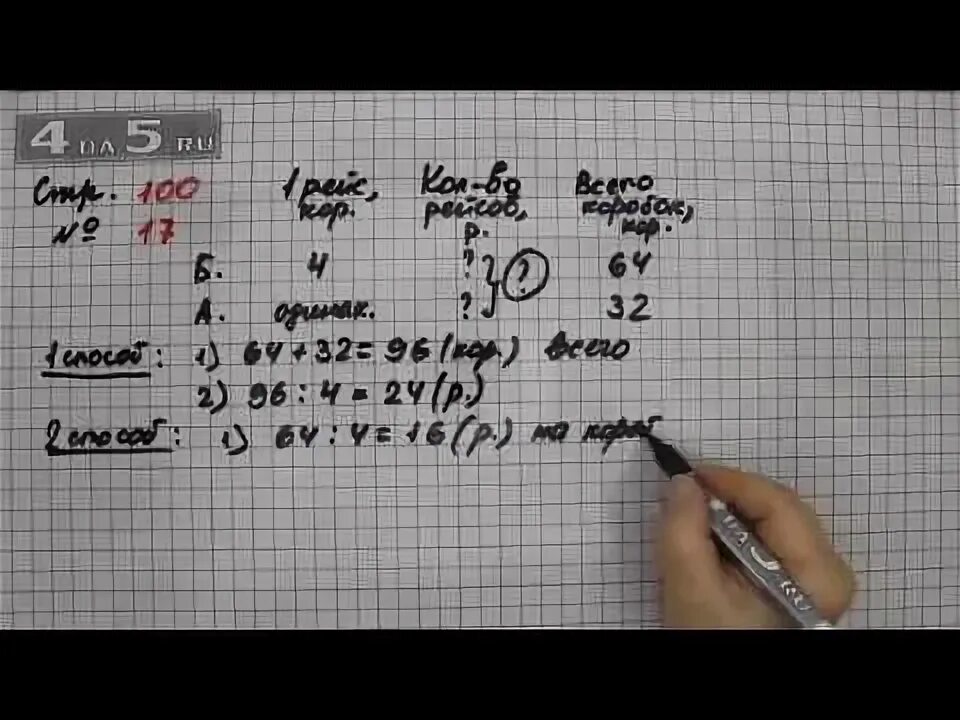 4 на 5 RU
Стр. 100 1 рейс, Кол-во Всего
№ 17 кор. рейсов, коробок,
р. кор.
Б. 4 ? } ? 64
А. одинак. ? 32
1 способ: 1) 64 + 32 = 96 (кор.) всего
2) 96 : 4 = 24 (р.)
2 способ: 1) 64 : 4 = 16 (р.) на